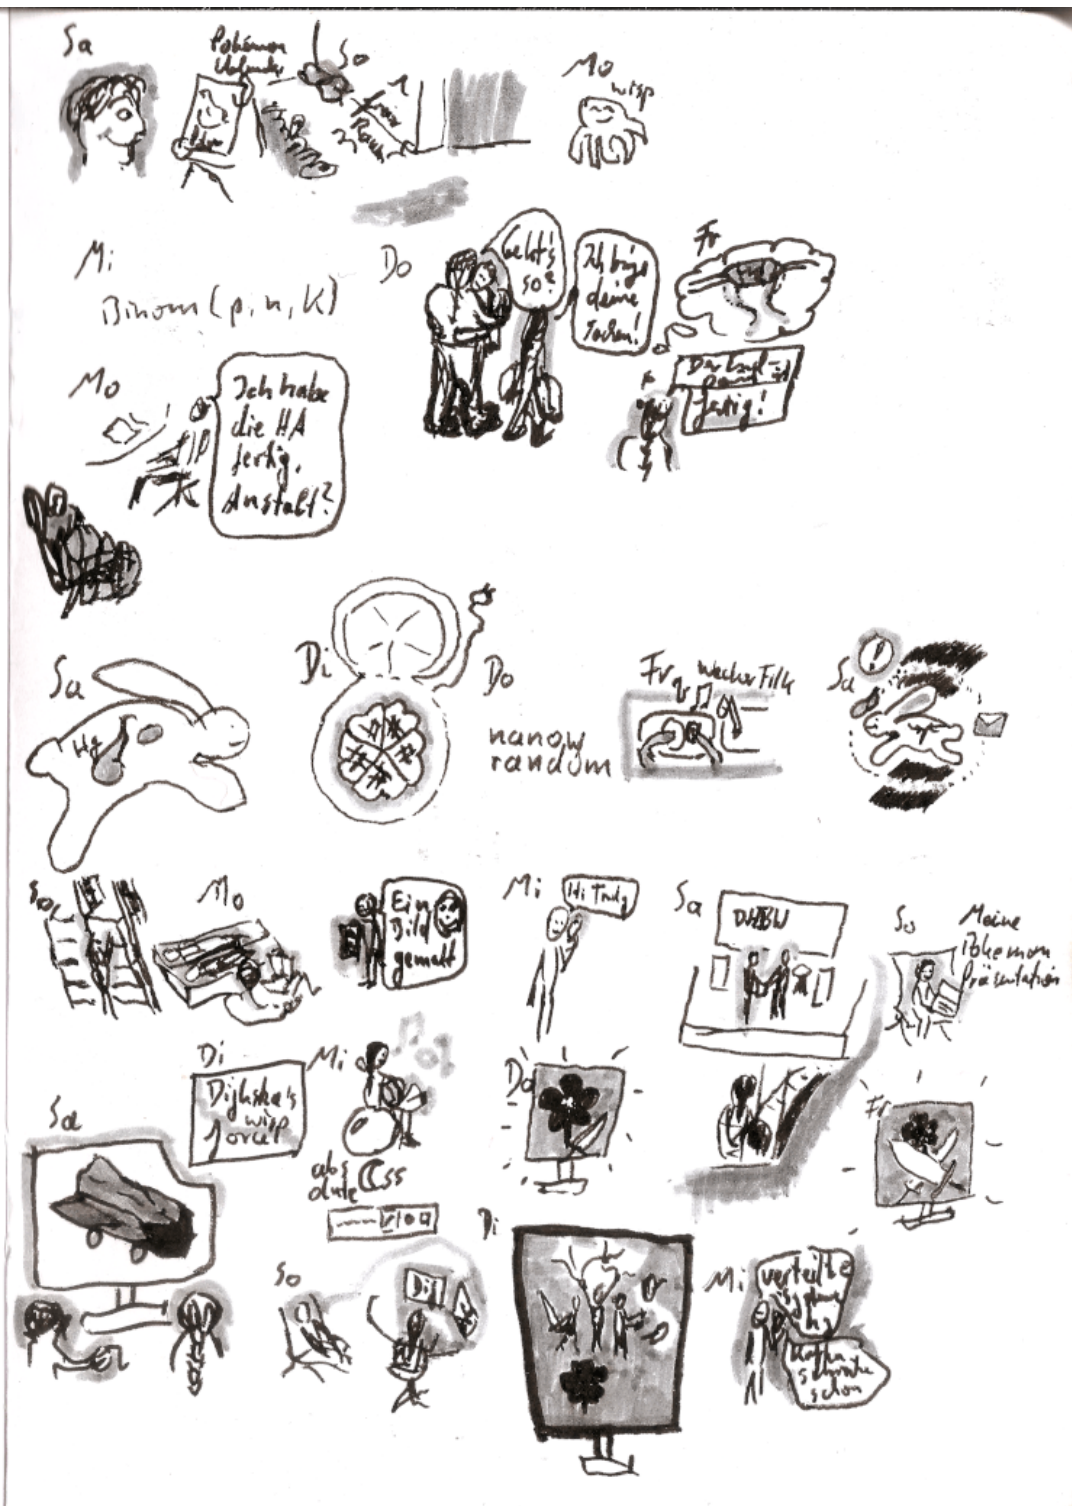 Sa
Pokémon
So
Mo
wisp
Mi
Binom(p,n,k)
Do
Geht's
so?
Ich
deine
Socken!
Fr
fertig!
Mo
Ich habe
die HA
fertig.
Anstalt?
Sa
Di
Do
nanow
random
Fr
wacher Filk
Sa
So
Mo
Ein
Bild
gemalt
Mi
Hi Trudy
Sa
DHBW
So
Meine
Pokemon
Präsentation
Di
Dijkska's
wisp
force
Mi
Do
Fr
Sa
abs
olute Css
So
Dij
Di
Mi
verteilte
Systeme
schon